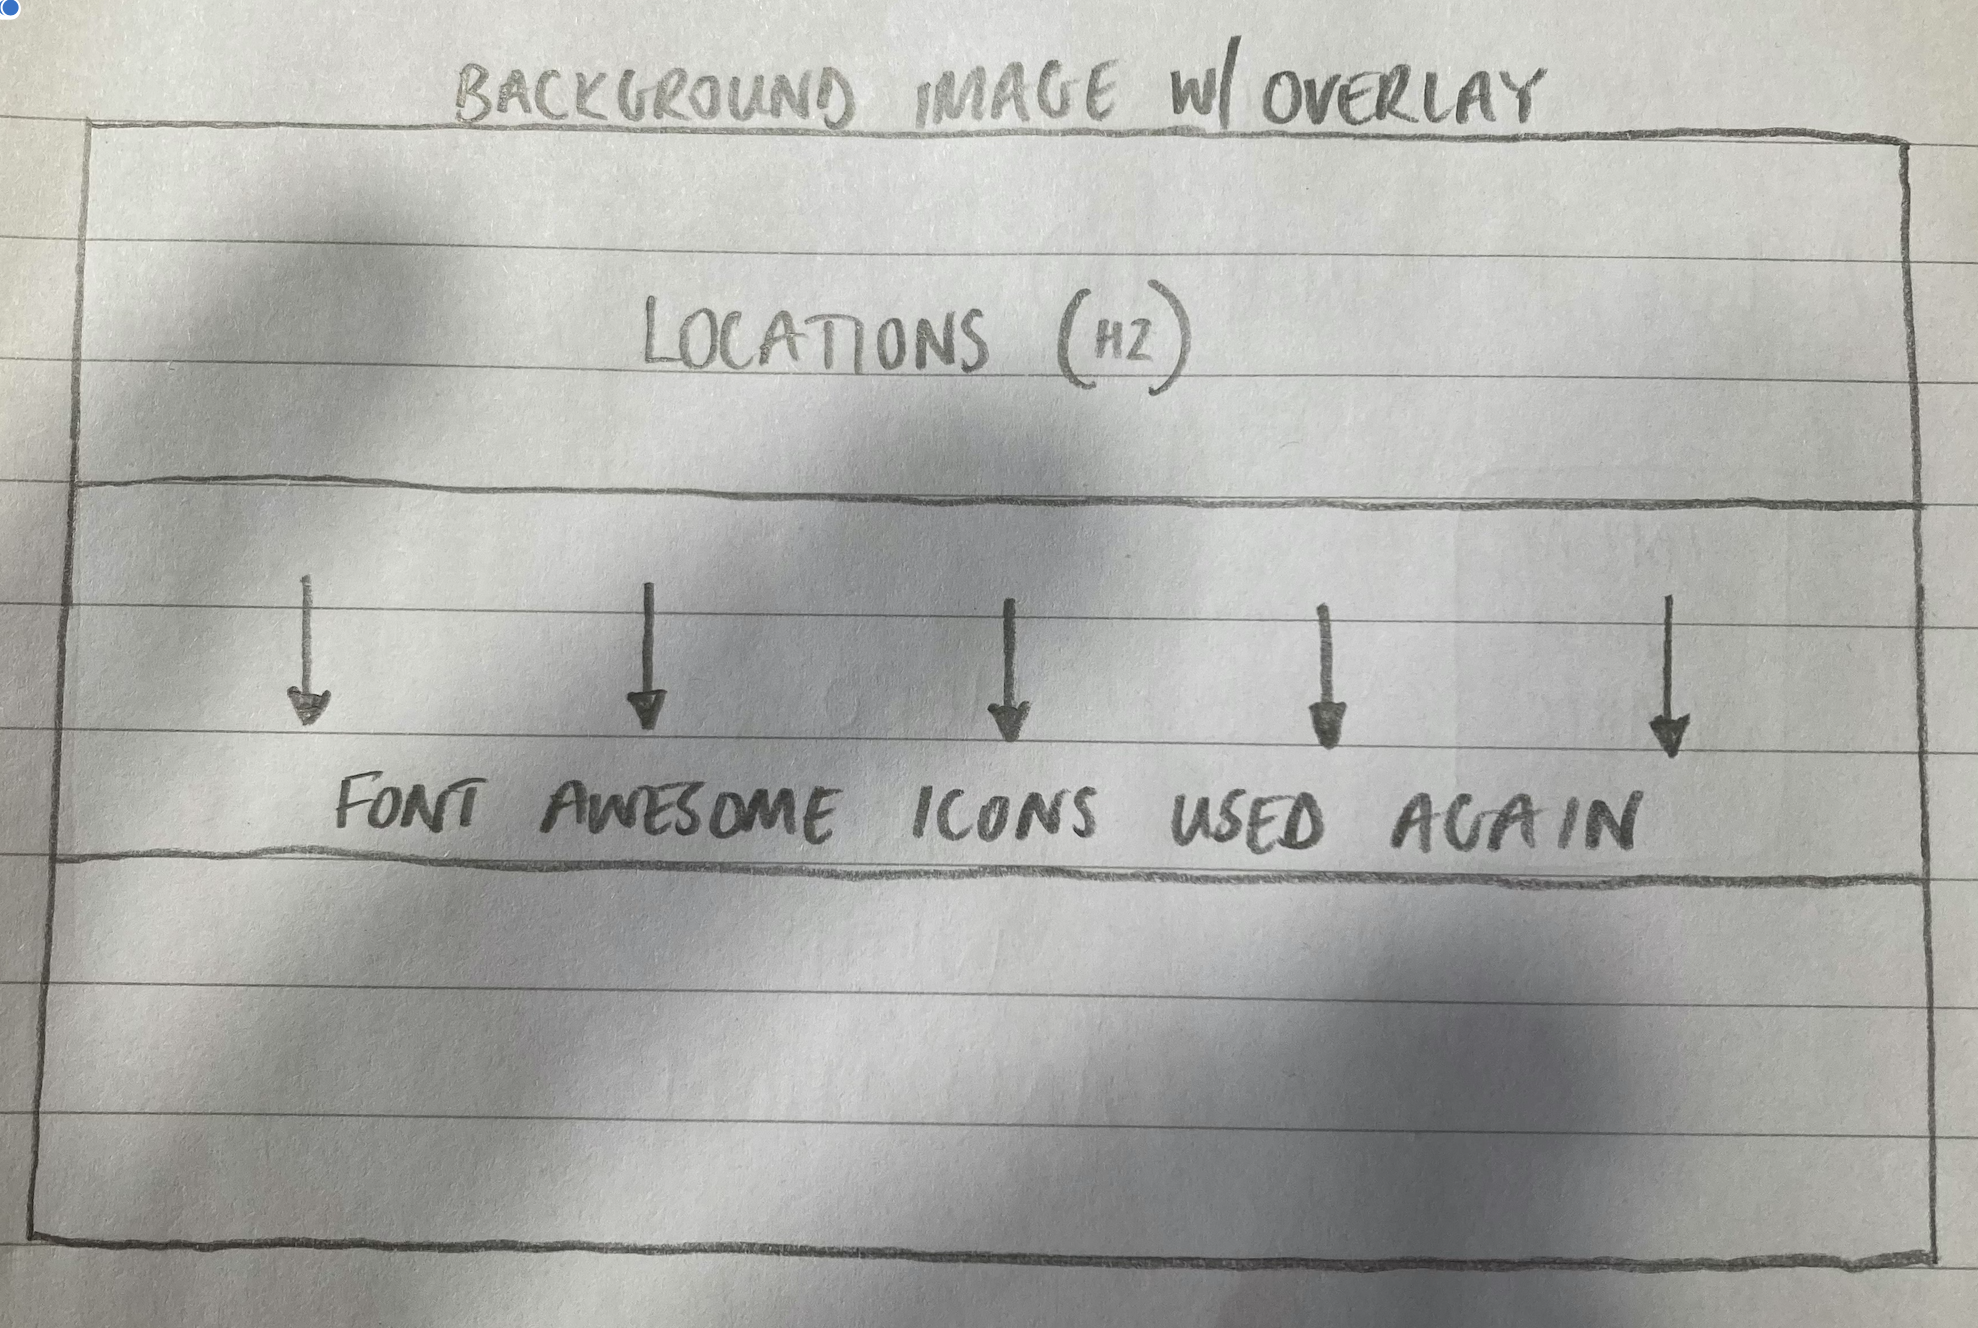 BACKGROUND IMAGE W/ OVERLAY
LOCATIONS (H2)
FONT AWESOME ICONS USED AGAIN